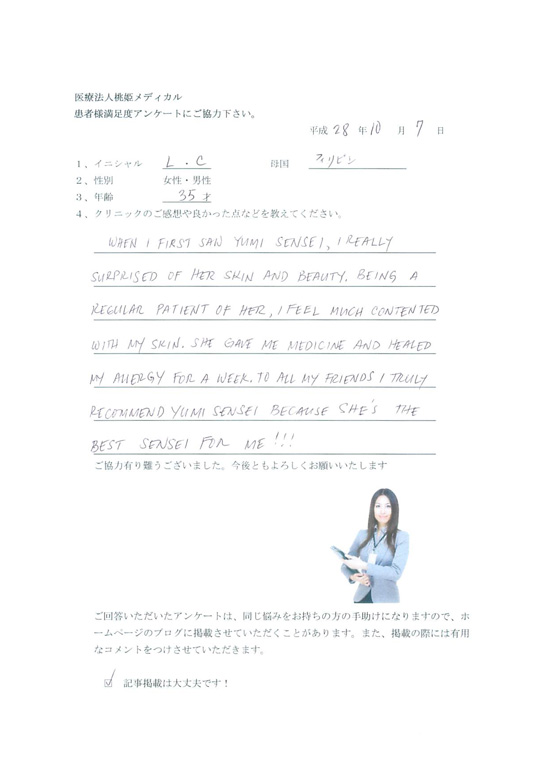 医療法人桃姫メディカル
患者様満足度アンケートにご協力下さい。
平成 28 年 10 月 7 日
1、イニシャル L . C 母国 フィリピン
2、性別 女性・男性
3、年齢 35 才
4、クリニックのご感想や良かった点などを教えてください。
WHEN I FIRST SAW YUMI SENSEI, I REALLY
SURPRISED OF HER SKIN AND BEAUTY. BEING A
REGULAR PATIENT OF HER, I FEEL MUCH CONTENTED
WITH MY SKIN. SHE GAVE ME MEDICINE AND HEALED
MY ALLERGY FOR A WEEK. TO ALL MY FRIENDS I TRULY
RECOMMEND YUMI SENSEI BECAUSE SHE'S THE
BEST SENSEI FOR ME !!!
ご協力有り難うございました。今後ともよろしくお願いいたします
ご回答いただいたアンケートは、同じ悩みをお持ちの方の手助けになりますので、ホ
ームページのブログに掲載させていただくことがあります。また、掲載の際には有用
なコメントをつけさせていただきます。
☑ 記事掲載は大丈夫です！